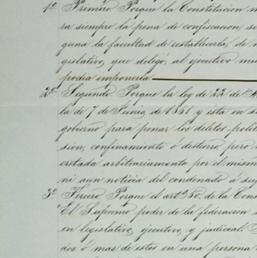 1º Primero Porque la Constitucion
ra siempre la pena de confiscacion,
guna la facultad de restablecerla,
gislativo, que delegó, al ejecutivo
podia imponerla
2º Segundo Porque la ley de 22 de
la de 7 de Junio, de 1861 y esta en su
gobierno para penar los delitos polit
sion, confinamiento ó destierro pero
cretada arbitrariamente por el mism
ni aun noticia del condenado ó su
3º Tercero Porque el artº 50, de la Cons
"El Supremo poder de la federacion
en legislativo, ejecutivo, y judicial:
dos ó mas de estos en una persona